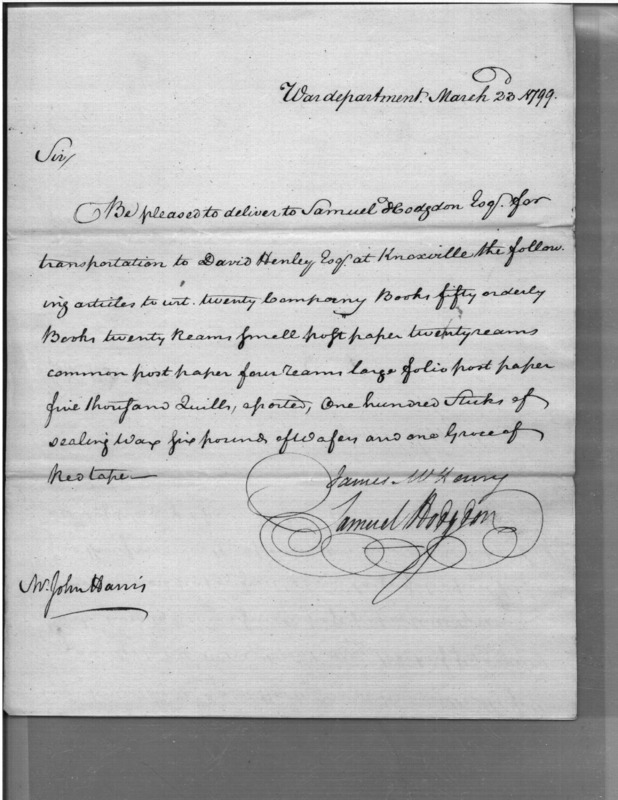 War department March 23d 1799.
Sir,
Be pleased to deliver to Samuel Hodgdon Esqr. for
transportation to David Henley Esqr. at Knoxville the follow-
ing articles to wit. twenty Company Books fifty orderly
Books twenty Reams small post paper twenty reams
common post paper four reams large folio post paper
five thousand Quills, assorted, One hundred Sticks of
sealing wax six pounds of Wafers and one Groce of
Red tape—
James McHenry
Samuel Hodgdon
Mr. John Harris